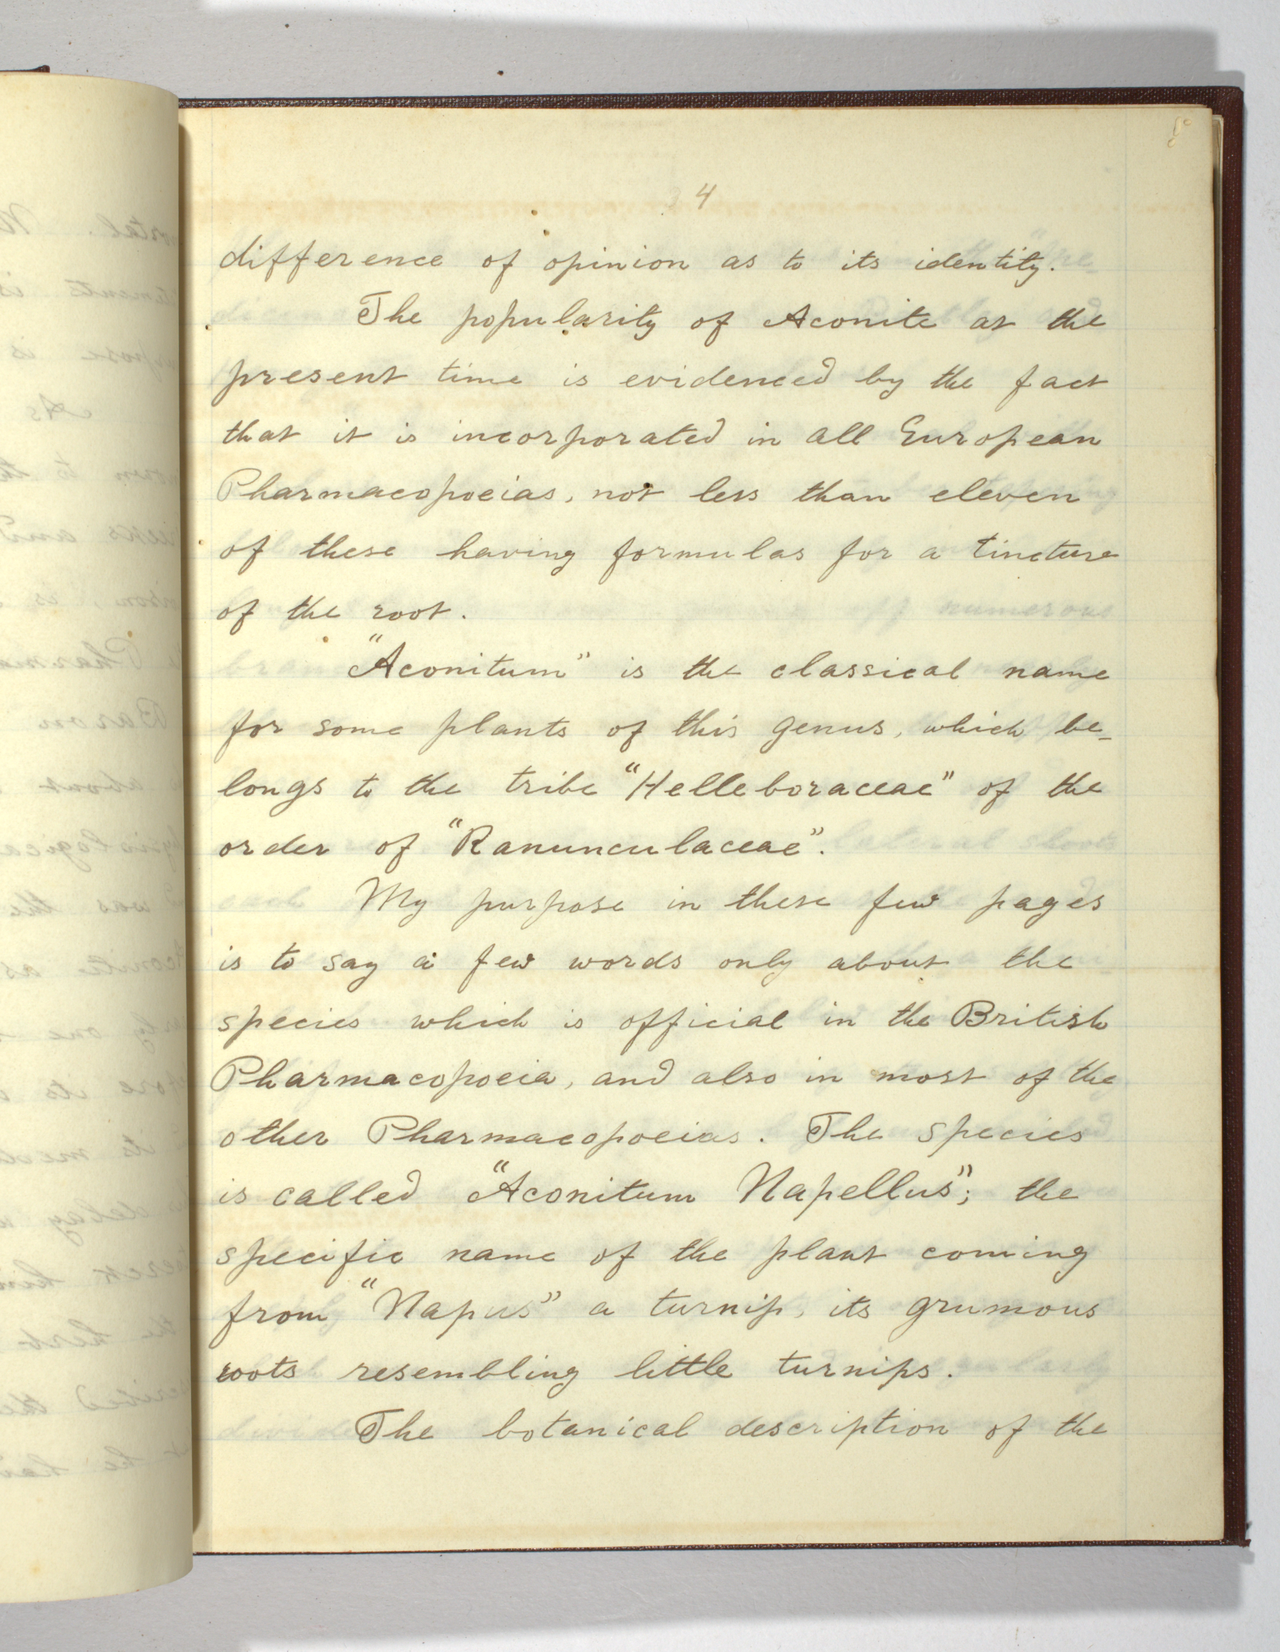 4
difference of opinion as to its identity.
The popularity of Aconite at the
present time is evidenced by the fact
that it is incorporated in all European
Pharmacopoeias, not less than eleven
of these having formulas for a tincture
of the root.
"Aconitum" is the classical name
for some plants of this genus, which be-
longs to the tribe "Helleboraceae" of the
order of "Ranunculaceae".
My purpose in these few pages
is to say a few words only about the
species which is official in the British
Pharmacopoeia, and also in most of the
other Pharmacopoeias. The species
is called "Aconitum Napellus"; the
specific name of the plant coming
from "Napus" a turnip, its grumous
roots resembling little turnips.
The botanical description of the